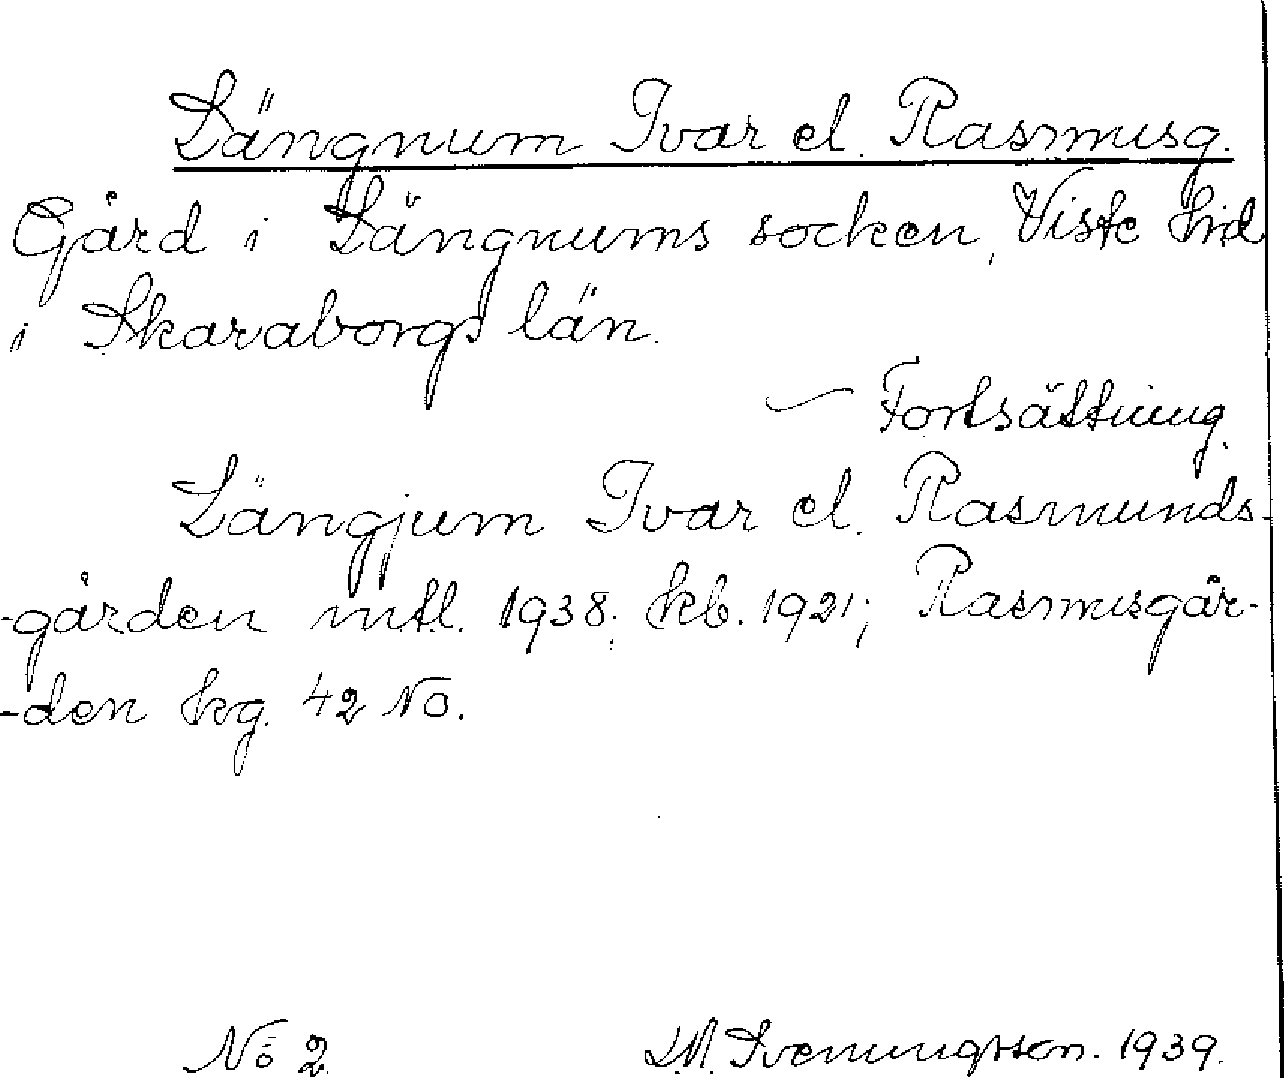 Längnum Ivar el. Rasmusg.
Gård i Längnums socken, Viste hrd
i Skaraborgs län.
— Fortsättning.
Längjum Ivar el. Rasmunds-
-gården mtl. 1938; kb. 1921; Rasmusgår-
-den kg. 42 No.
No 2
Sveningsson. 1939.